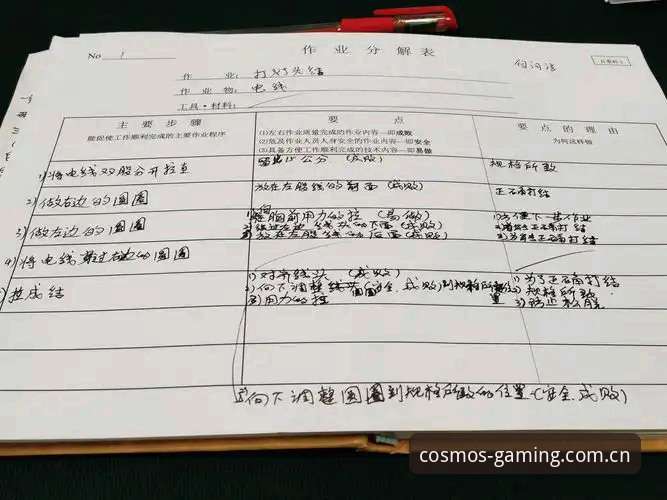 No 1
作业分解表
作业: 打灯头结
作业物: 电线
工具·材料:
主要步骤
能促使工作顺利完成的主要作业程序
要点
(1)左右作业质量完成的作业内容—即成败
(2)危及作业人员人身安全的作业内容—即安全
(3)具备方便工作顺利完成的技术内容—即易做
要点的理由
为何这样做
1)将电线双股分开拉直
15公分 (成败)
规格所数
2)做右边的圆圈
放在左股线的前面 (成败)
正确打结
3)做左边的圆圈
1)向胸前用力的拉 (易做)
2)经过左边线头的下面(成败)
3)放在左股线的后面(成败)
1)方便下一步作业
2)正确打结
3)正确打结
4)将电线穿过右边的圆圈
5)拉成结
1)对齐线头 (成败)
2)向下调整圆圈(安全.成败)到规格所数位置
3)用力的拉
1)为了正确打结
2)规格所数
3)防止松脱
2)向下调整圆圈到规格所数的位置(安全.成败)
cosmos-gaming.com.cn